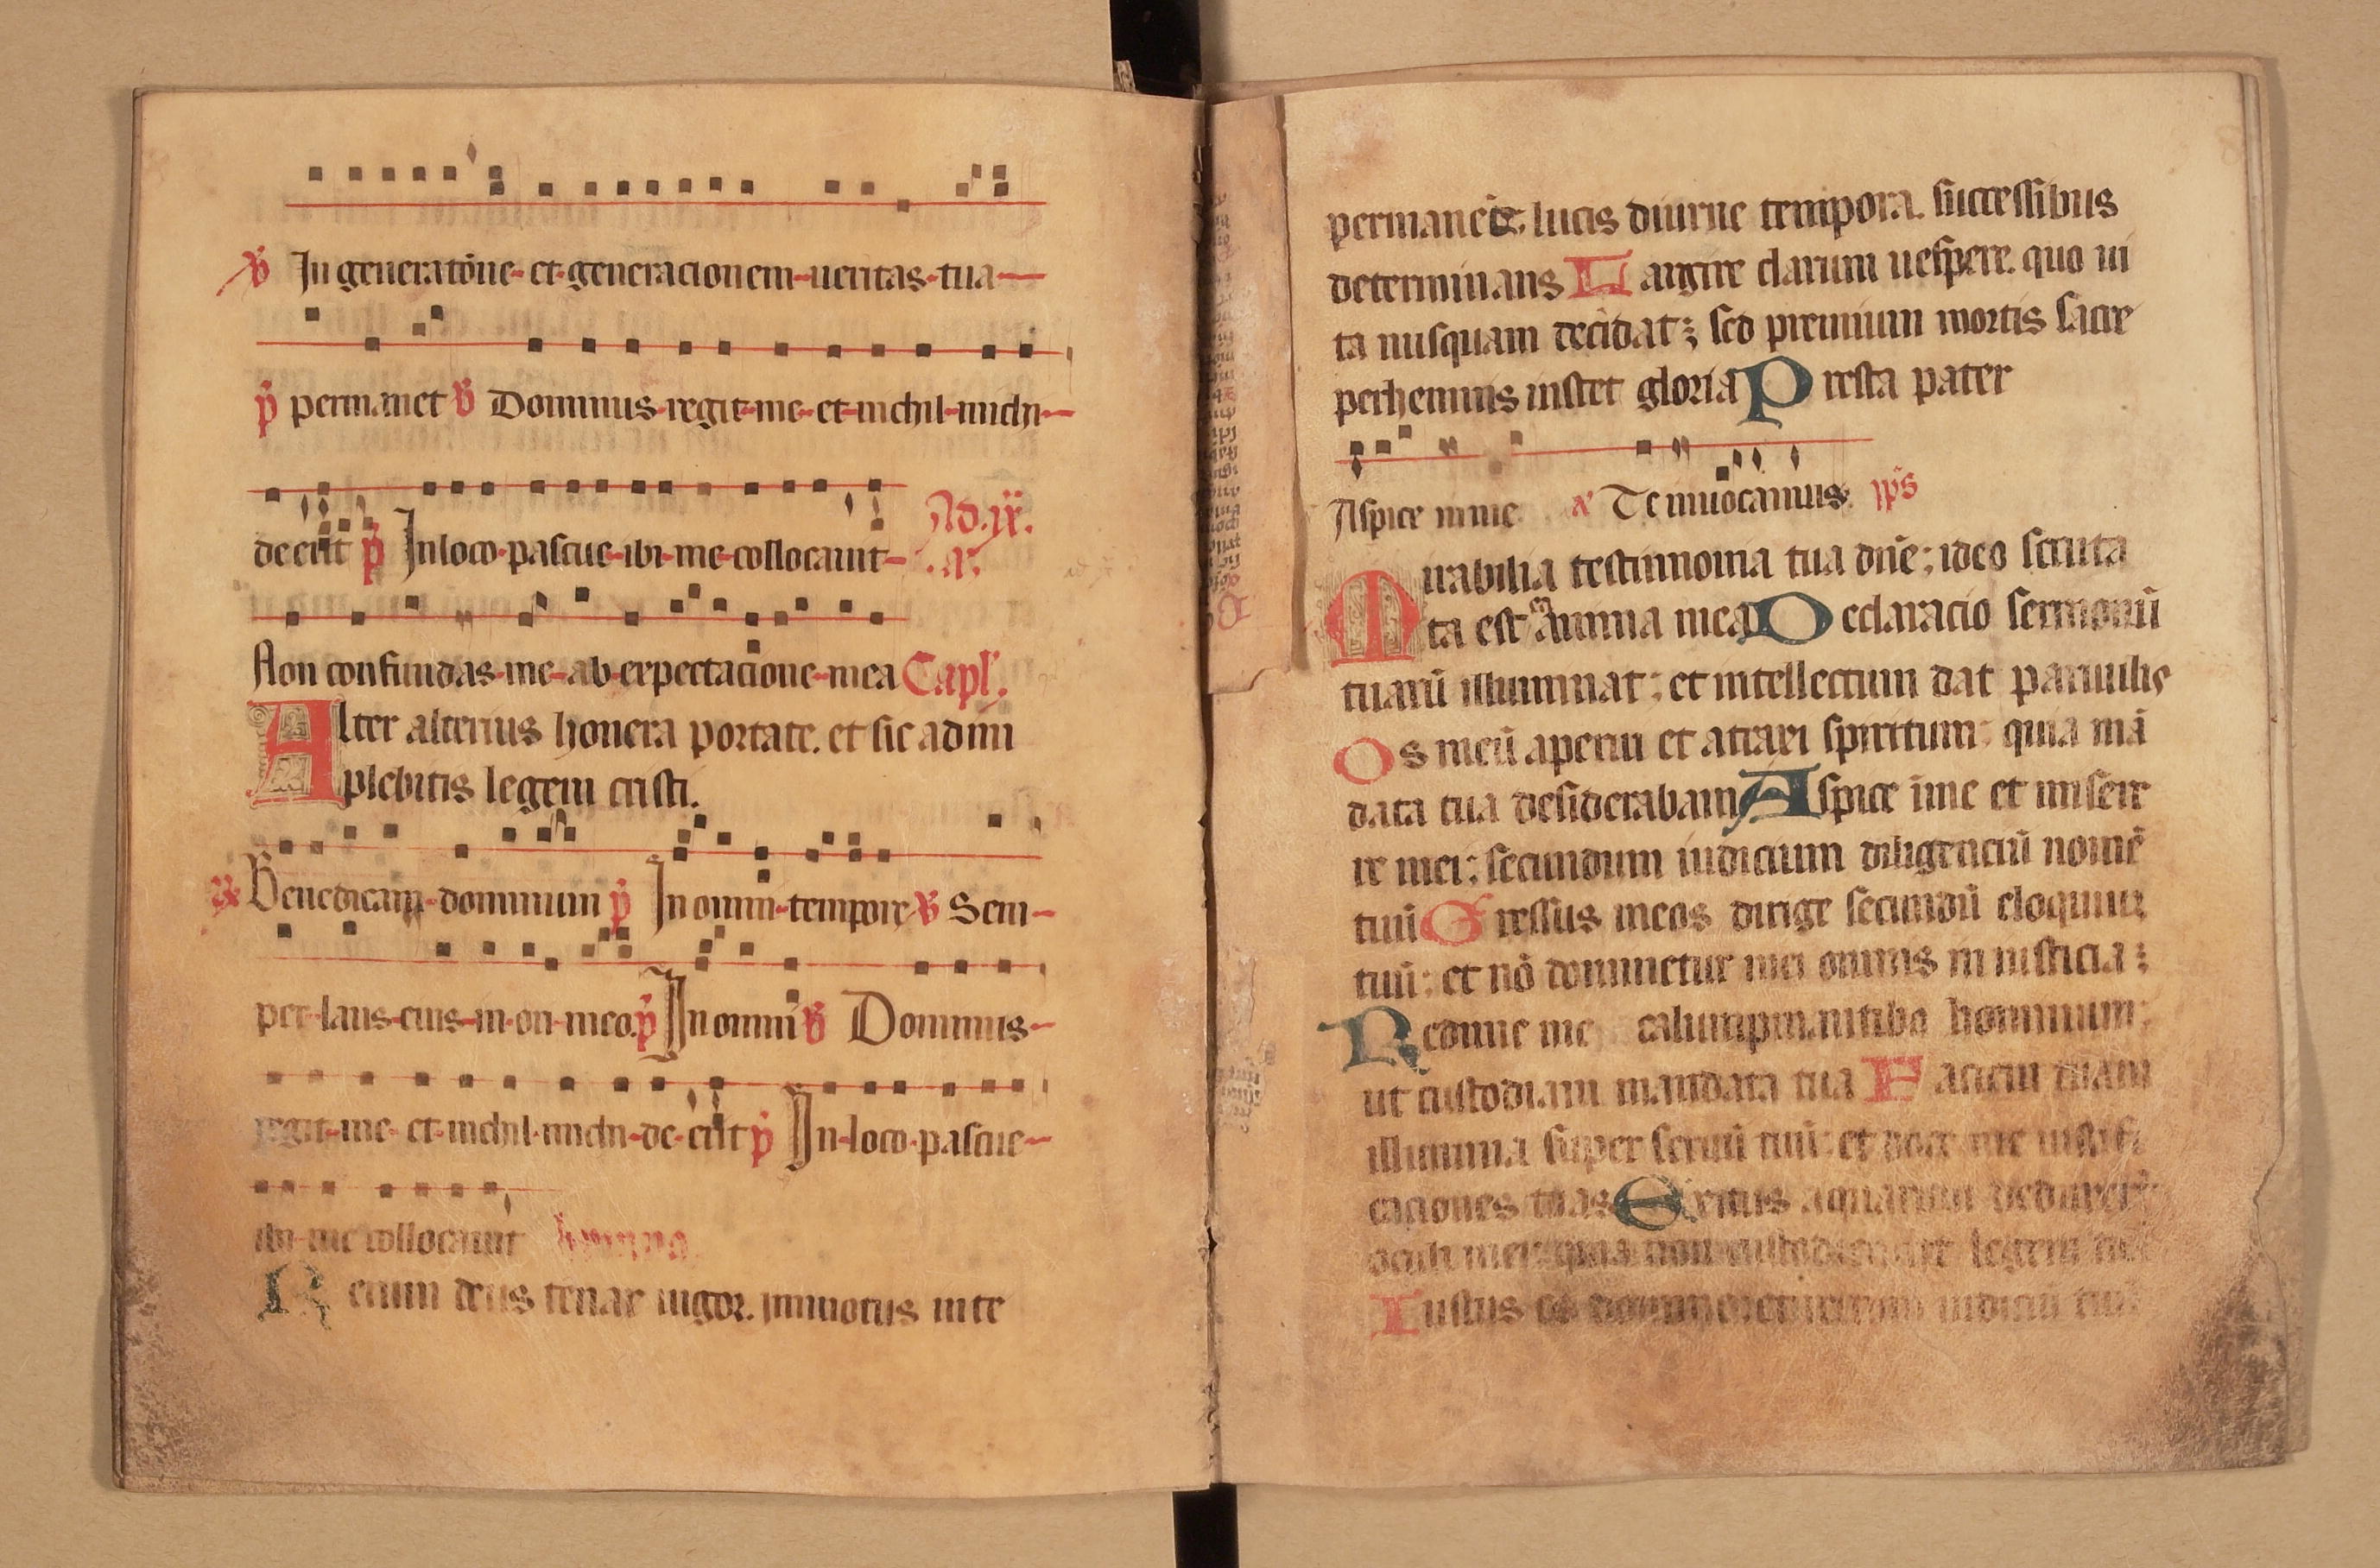 ℣ In generatōne et generacionem ueritas tua
p̄ permanet ℣ Dominus regit me et nichil michi
deerit p̄ In loco pascue ibi me collocauit Ad .ix.
.a.
Non confundas me ab expectacione mea Capl'.
Alter alterius honera portate. et sic adim
plebitis legem cristi.
℟ Benedicam dominum p̄ In omni tempore ℣ Sem
per laus eius in ori meo. p̄ In omni ℣ Dominus
regit me et nichil michi deerit p̄ In loco pascue
ibi me collocauit
Rerum deus tenax uigor. inmotus in te
permanēs lucis diurne tempora. successibus
determinans Largire clarum uespere. quo ui
ta nusquam decidat; sed premium mortis sacre
perhennis instet gloria Presta pater
Aspice in me a' Te inuocamus. ps
Mirabilia testimonia tua dn̄e; ideo scruta
ta est anima mea Declaracio sermonū
tuarū illuminat; et intellectum dat paruulis
Os meū aperui et atraxi spiritum; quia mā
data tua desiderabam Aspice ī me et misere
re mei; secundum iudicium diligenciū nomē
tuū Gressus meos dirige secundū eloquiū
tuū; et nō dominetur mei omnis iniusticia;
Redime me calumpniis hominum;
ut custodiam mandata tua Faciem tuam
illumina super seruū tuū; et doce me iustifi
caciones tuas Exitus aquarum deduxerūt
oculi mei; quia non custodierunt legem tuā
Iustus es domine; et rectum iudiciū tuū